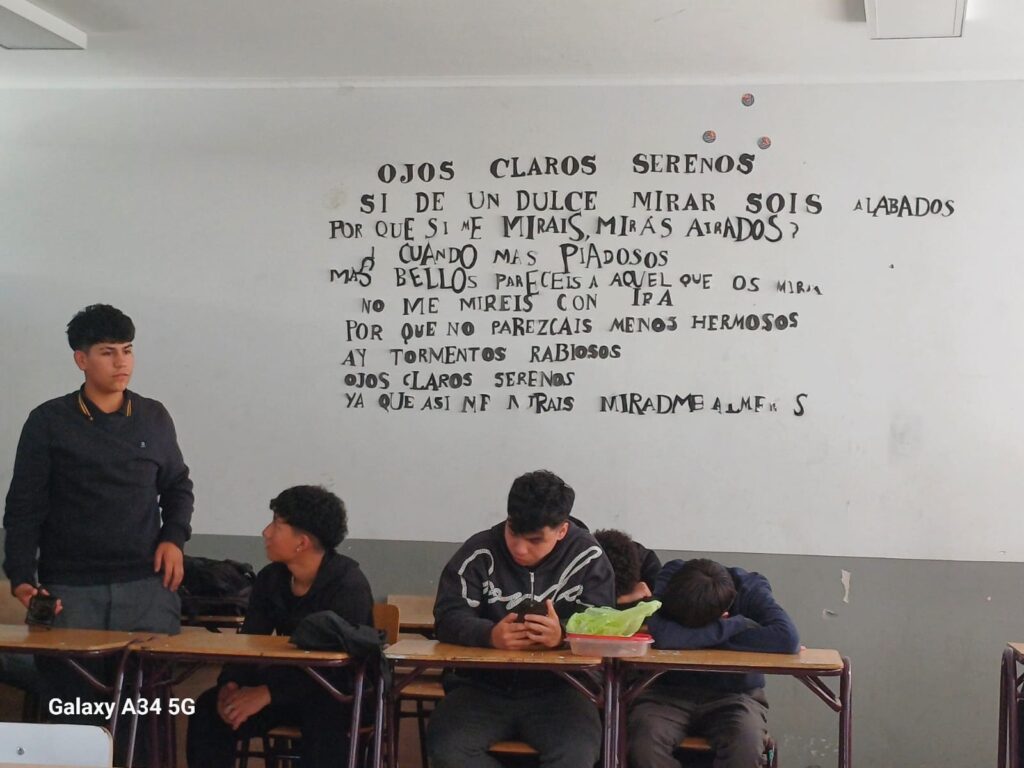 OJOS CLAROS SERENOS
SI DE UN DULCE MIRAR SOIS ALABADOS
POR QUE SI ME MIRAIS, MIRÁS AIRADOS?
CUANDO MAS PIADOSOS
MAS BELLOS PARECEIS A AQUEL QUE OS MIRA
NO ME MIREIS CON IRA
POR QUE NO PAREZCAIS MENOS HERMOSOS
AY TORMENTOS RABIOSOS
OJOS CLAROS SERENOS
YA QUE ASI ME MIRADME
Galaxy A34 5G